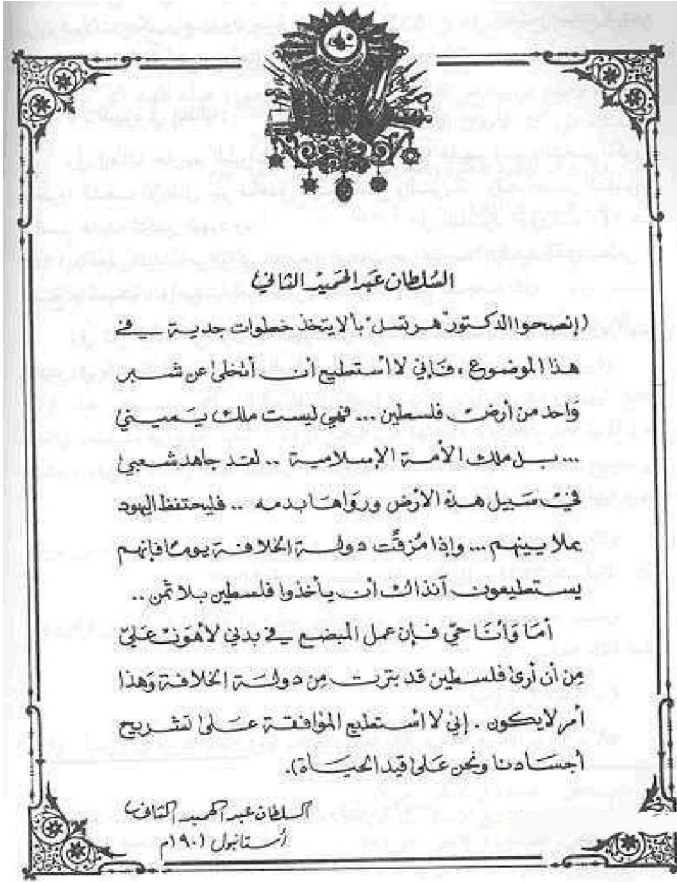 السُلطان عَبد الحَميد الثاني
(إنصحوا الدكتور هرتسل بألا يتخذ خطوات جدية في
هذا الموضوع، فإني لا استطيع ان أتخلى عن شبر
واحد من أرض فلسطين ... فهي ليست ملك يَميني
... بل ملك الأمة الإسلامية .. لقد جاهد شعبي
في سَبيل هذه الأرض ورواها بدمه .. فليحتفظ اليهود
بملايينهم ... وإذا مُزقّت دولة الخلافة يومًا فإنهم
يستطيعون آنذاك أن يأخذوا فلسطين بلا ثمن ..
أمَا وَأنَا حَيّ فإن عمل المبضع في بدني لأهوَن عَليّ
مِن أن أرى فلسطين قد بترت مِن دولة الخلافة وَهذا
أمر لا يكون . إني لا استطيع المُوافقة عَلى تشريح
أجسَادنا ونحن عَلى قيد الحيَاة).
السلطان عبد الحميد الثاني
أستانبول ١٩٠١م